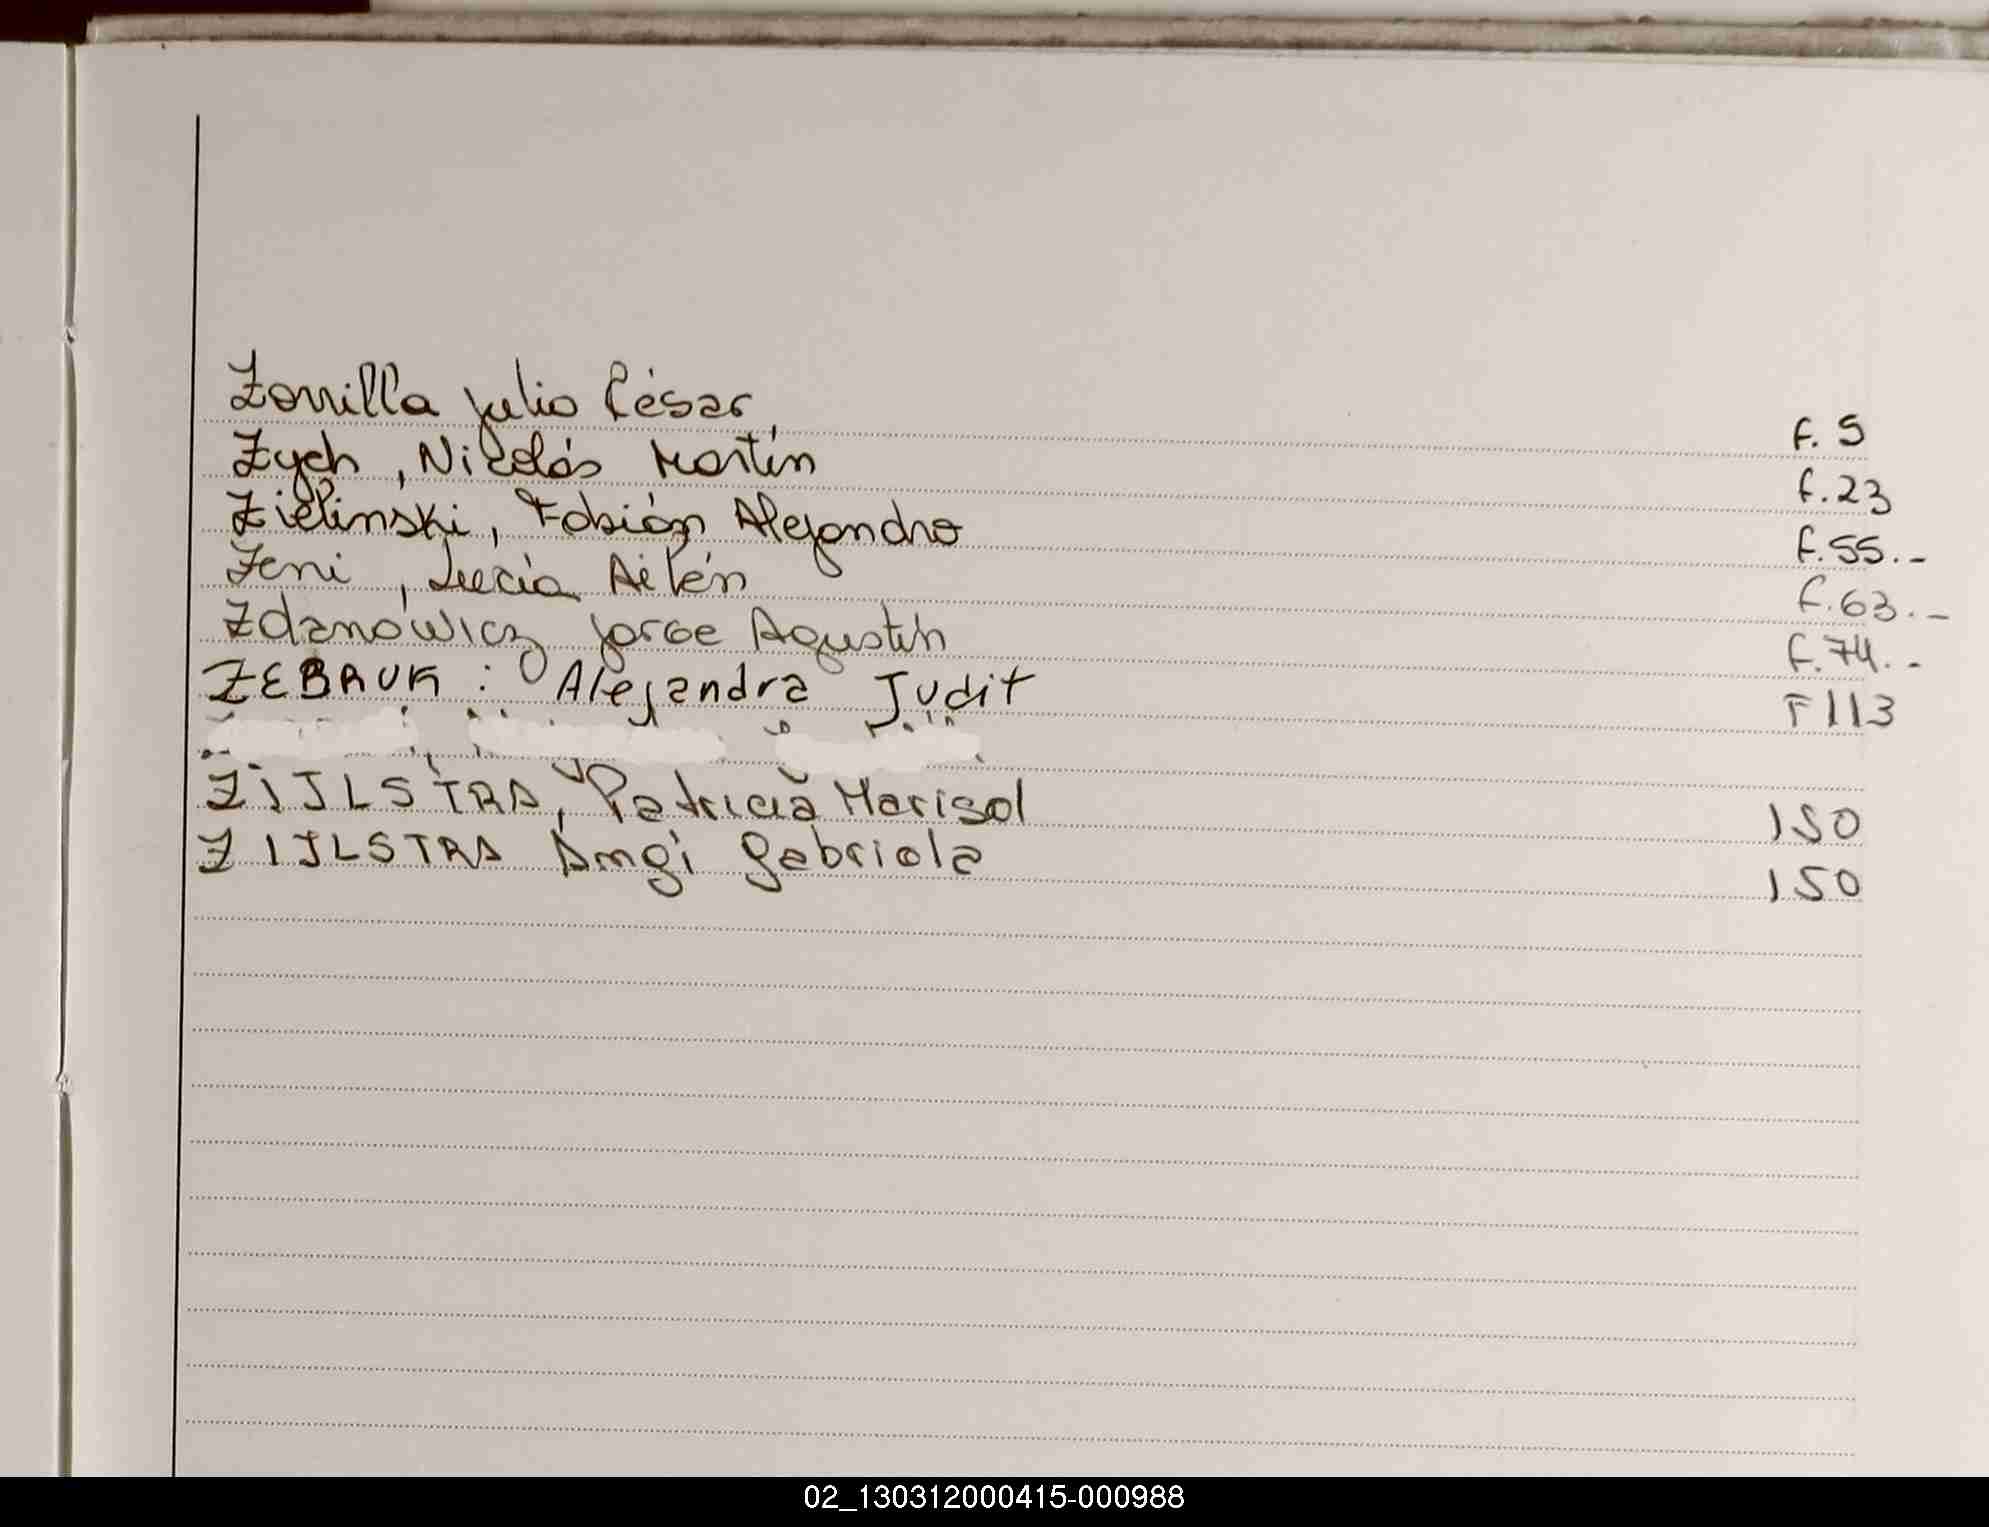 Zorrilla Julio César f. 5
Zych, Nicolás Martín f. 23
Zielinski, Fabián Alejandro f. 55.-
Zeni, Lucía Ailén f. 63.-
Zdanowicz Jorge Agustín f. 74.-
ZEBRUK: Alejandra Judit F 113
ZIJLSTRA, Patricia Marisol 150
ZIJLSTRA Angi Gabriela 150
02_130312000415-000988